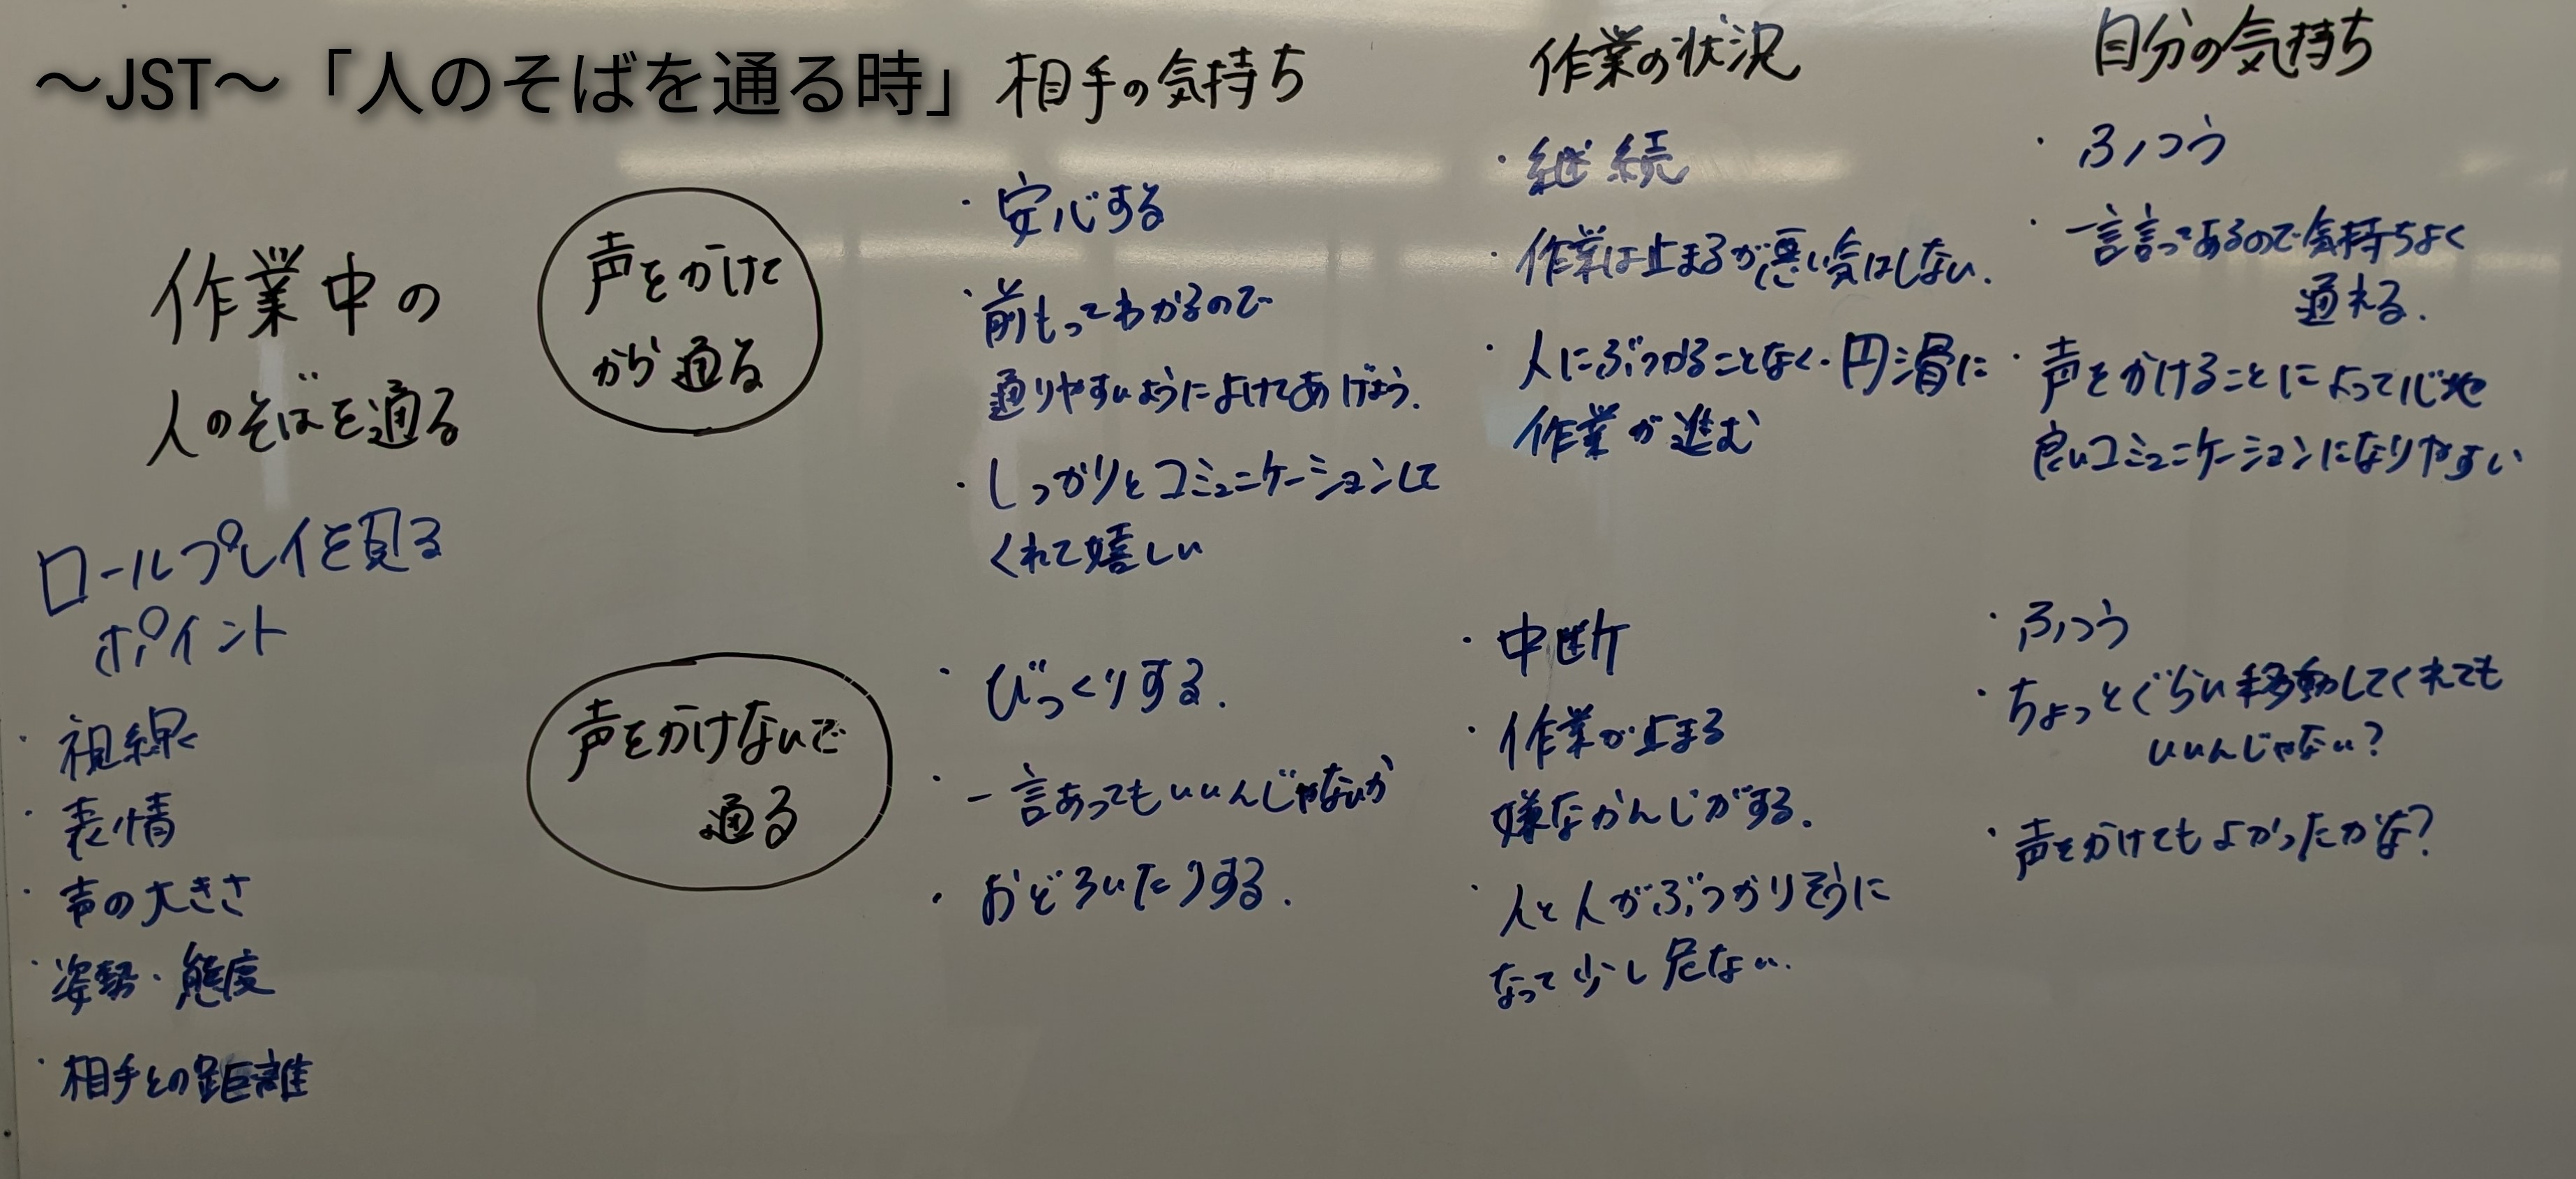 ～JST～「人のそばを通る時」
作業中の
人のそばを通る
ロールプレイを見る
ポイント
・視線
・表情
・声の大きさ
・姿勢・態度
・相手との距離
声をかけて
から通る
声をかけないで
通る
相手の気持ち
・安心する
・前もってわかるので
通りやすいようによけてあげよう.
・しっかりとコミュニケーションして
くれて嬉しい
・びっくりする.
・一言あってもいいんじゃないか
・おどろいたりする.
作業の状況
・継続
・作業は止まるが悪い気はしない.
・人にぶつかることなく・円滑に
作業が進む
・中断
・作業が止まる
嫌なかんじがする.
・人と人がぶつかりそうに
なって少し危ない.
自分の気持ち
・ふつう
・一言言ってあるので気持ちよく
通れる.
・声をかけることによって心地
良いコミュニケーションになりやすい
・ふつう
・ちょっとぐらい移動してくれても
いいんじゃない?
・声をかけてもよかったかな?